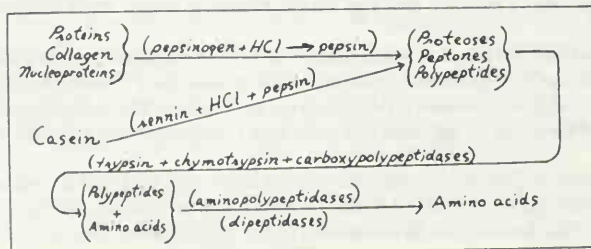 Proteins
Collagen
Nucleoproteins
(pepsinogen + HCl → pepsin)
Proteoses
Peptones
Polypeptides
(rennin + HCl + pepsin)
Casein
(trypsin + chymotrypsin + carboxypolypeptidases)
Polypeptides
+
Amino acids
(aminopolypeptidases)
(dipeptidases)
Amino acids